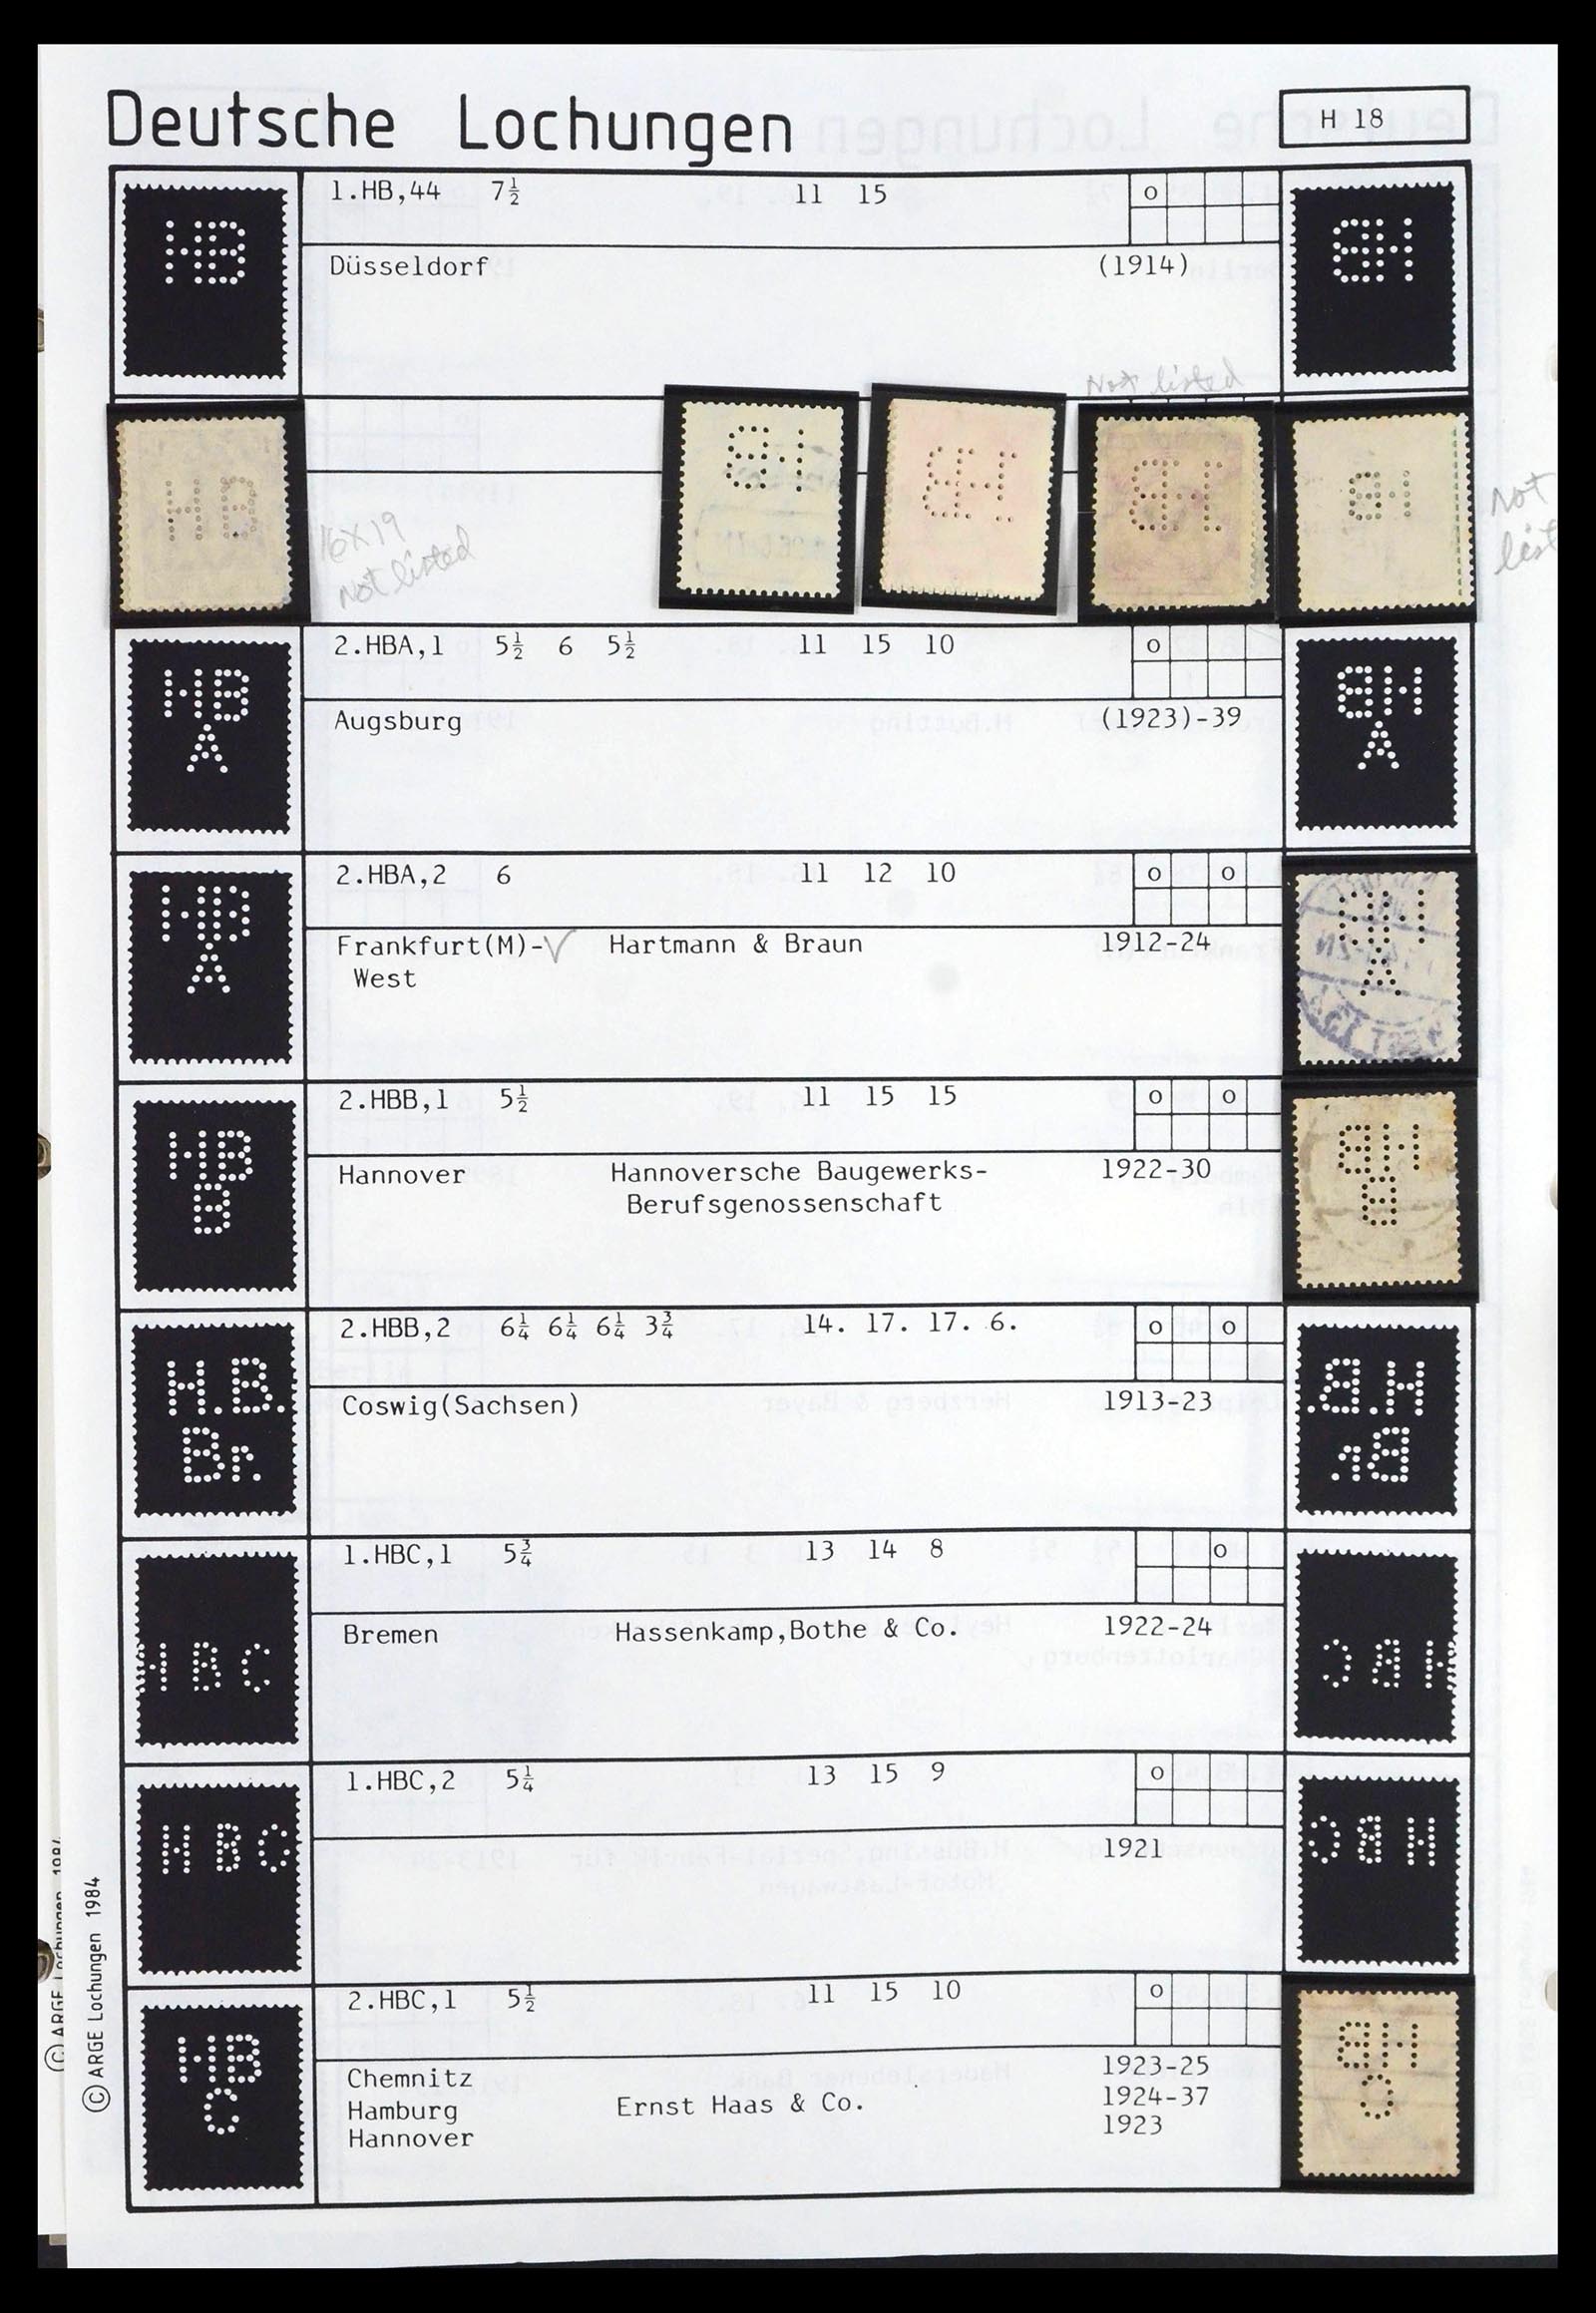 Deutsche Lochungen
H 18
1.HB,44 7½ 11 15 o
Düsseldorf (1914)
HB
HB
Not listed
16X19
Not listed
Not
list
2.HBA,1 5½ 6 5½ 11 15 10 o
Augsburg (1923)-39
HB
A
HB
A
2.HBA,2 6 11 12 10 o o
Frankfurt(M)-√ Hartmann & Braun 1912-24
West
HB
A
2.HBB,1 5½ 11 15 15 o o
Hannover Hannoversche Baugewerks- 1922-30
Berufsgenossenschaft
HB
B
HB
B
2.HBB,2 6¼ 6¼ 6¼ 3¾ 14. 17. 17. 6. o o
Coswig(Sachsen) 1913-23
H.B.
Br.
H.B.
Br.
1.HBC,1 5¾ 13 14 8 o
Bremen Hassenkamp,Bothe & Co. 1922-24
HBC
HBC
1.HBC,2 5¼ 13 15 9 o
1921
HBC
HBC
2.HBC,1 5½ 11 15 10 o
Chemnitz 1923-25
Hamburg Ernst Haas & Co. 1924-37
Hannover 1923
HB
C
HB
C
© ARGE Lochungen 1984
© ARGE Lochungen 1984